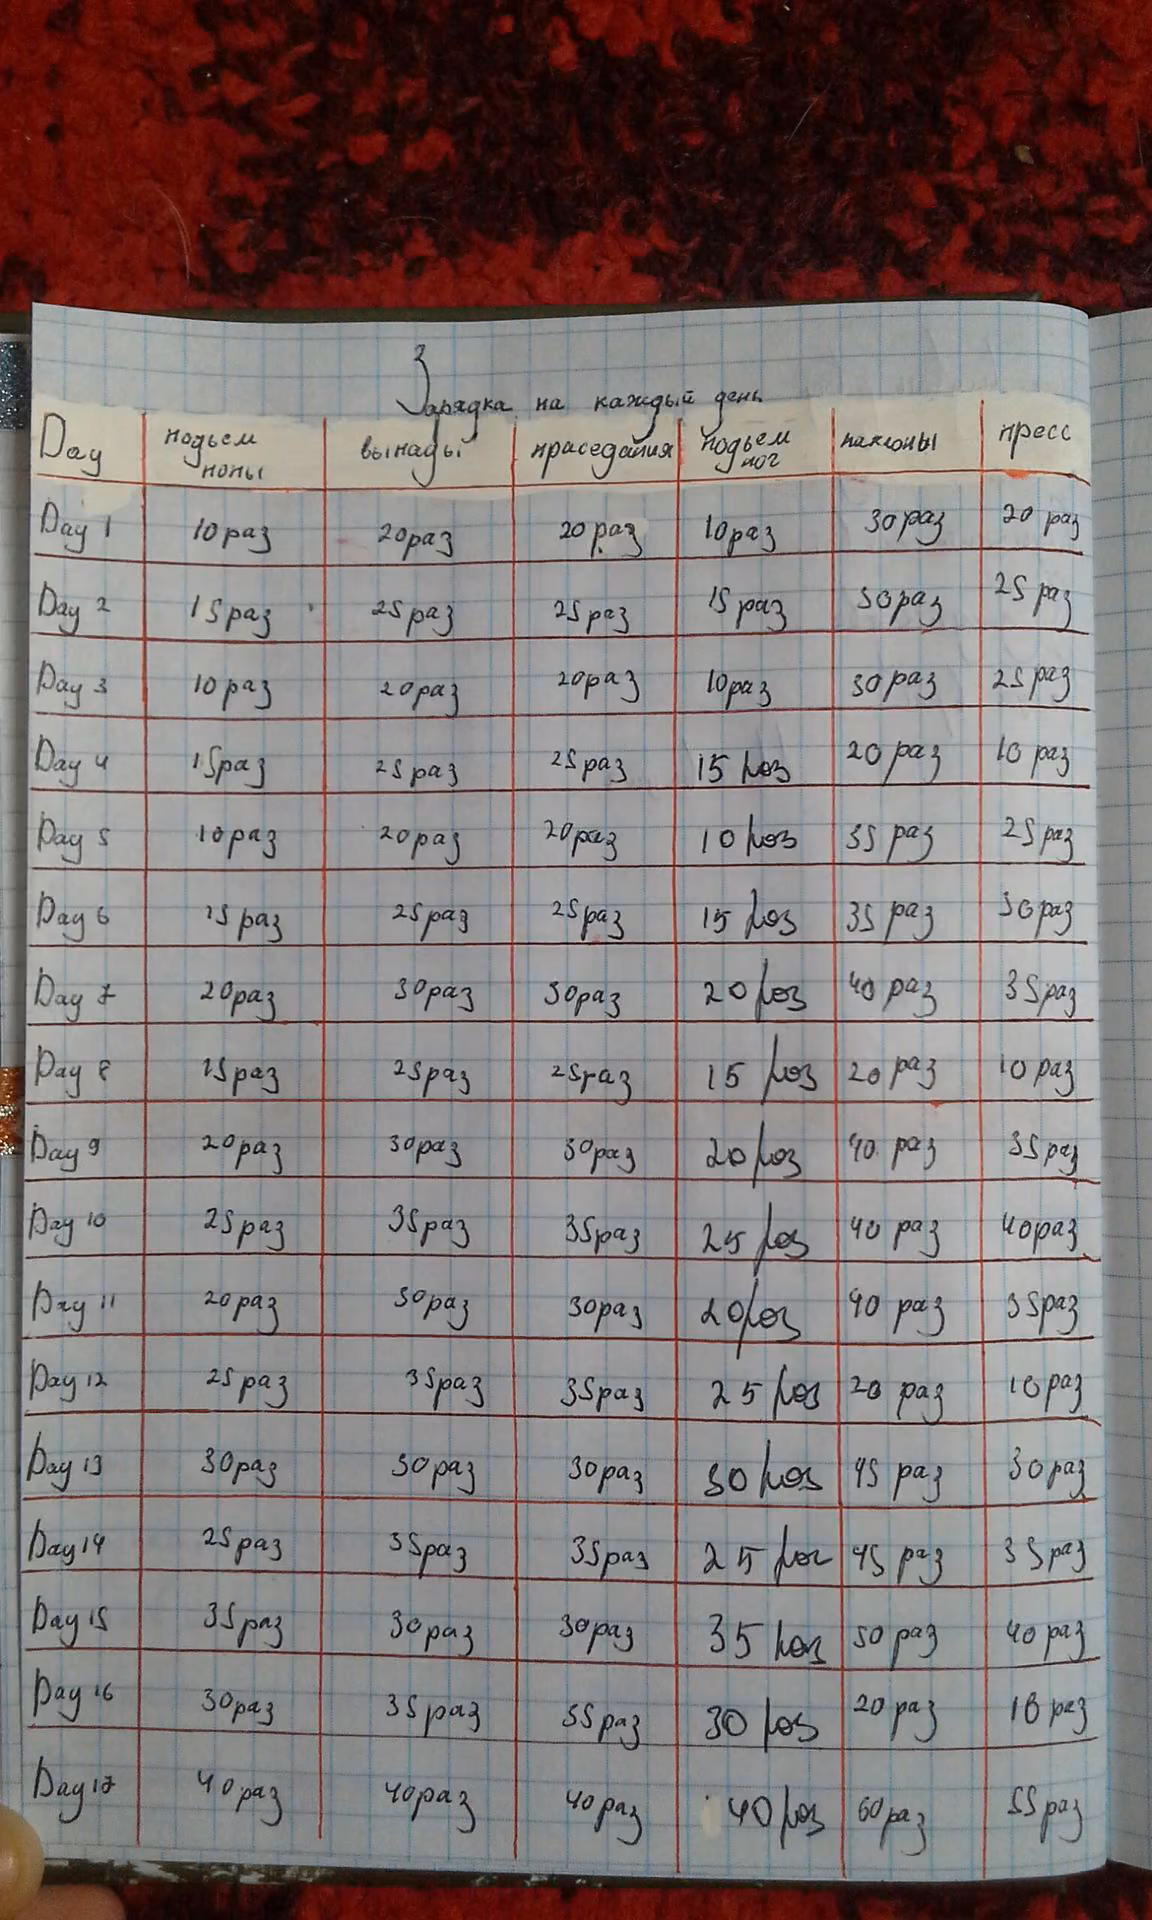 Зарядка на каждый день
Day подьем попы выпады приседания подьем ног наклоны пресс
Day 1 10 раз 20 раз 20 раз 10 раз 30 раз 20 раз
Day 2 15 раз 25 раз 25 раз 15 раз 30 раз 25 раз
Day 3 10 раз 20 раз 20 раз 10 раз 30 раз 25 раз
Day 4 15 раз 25 раз 25 раз 15 раз 20 раз 10 раз
Day 5 10 раз 20 раз 20 раз 10 раз 35 раз 25 раз
Day 6 15 раз 25 раз 25 раз 15 раз 35 раз 30 раз
Day 7 20 раз 30 раз 30 раз 20 раз 40 раз 35 раз
Day 8 15 раз 25 раз 25 раз 15 раз 20 раз 10 раз
Day 9 20 раз 30 раз 30 раз 20 раз 40 раз 35 раз
Day 10 25 раз 35 раз 35 раз 25 раз 40 раз 40 раз
Day 11 20 раз 30 раз 30 раз 20 раз 40 раз 35 раз
Day 12 25 раз 35 раз 35 раз 25 раз 20 раз 10 раз
Day 13 30 раз 30 раз 30 раз 30 раз 45 раз 30 раз
Day 14 25 раз 35 раз 35 раз 25 раз 45 раз 35 раз
Day 15 35 раз 30 раз 30 раз 35 раз 50 раз 40 раз
Day 16 30 раз 35 раз 35 раз 30 раз 20 раз 10 раз
Day 17 40 раз 40 раз 40 раз 40 раз 60 раз 55 раз